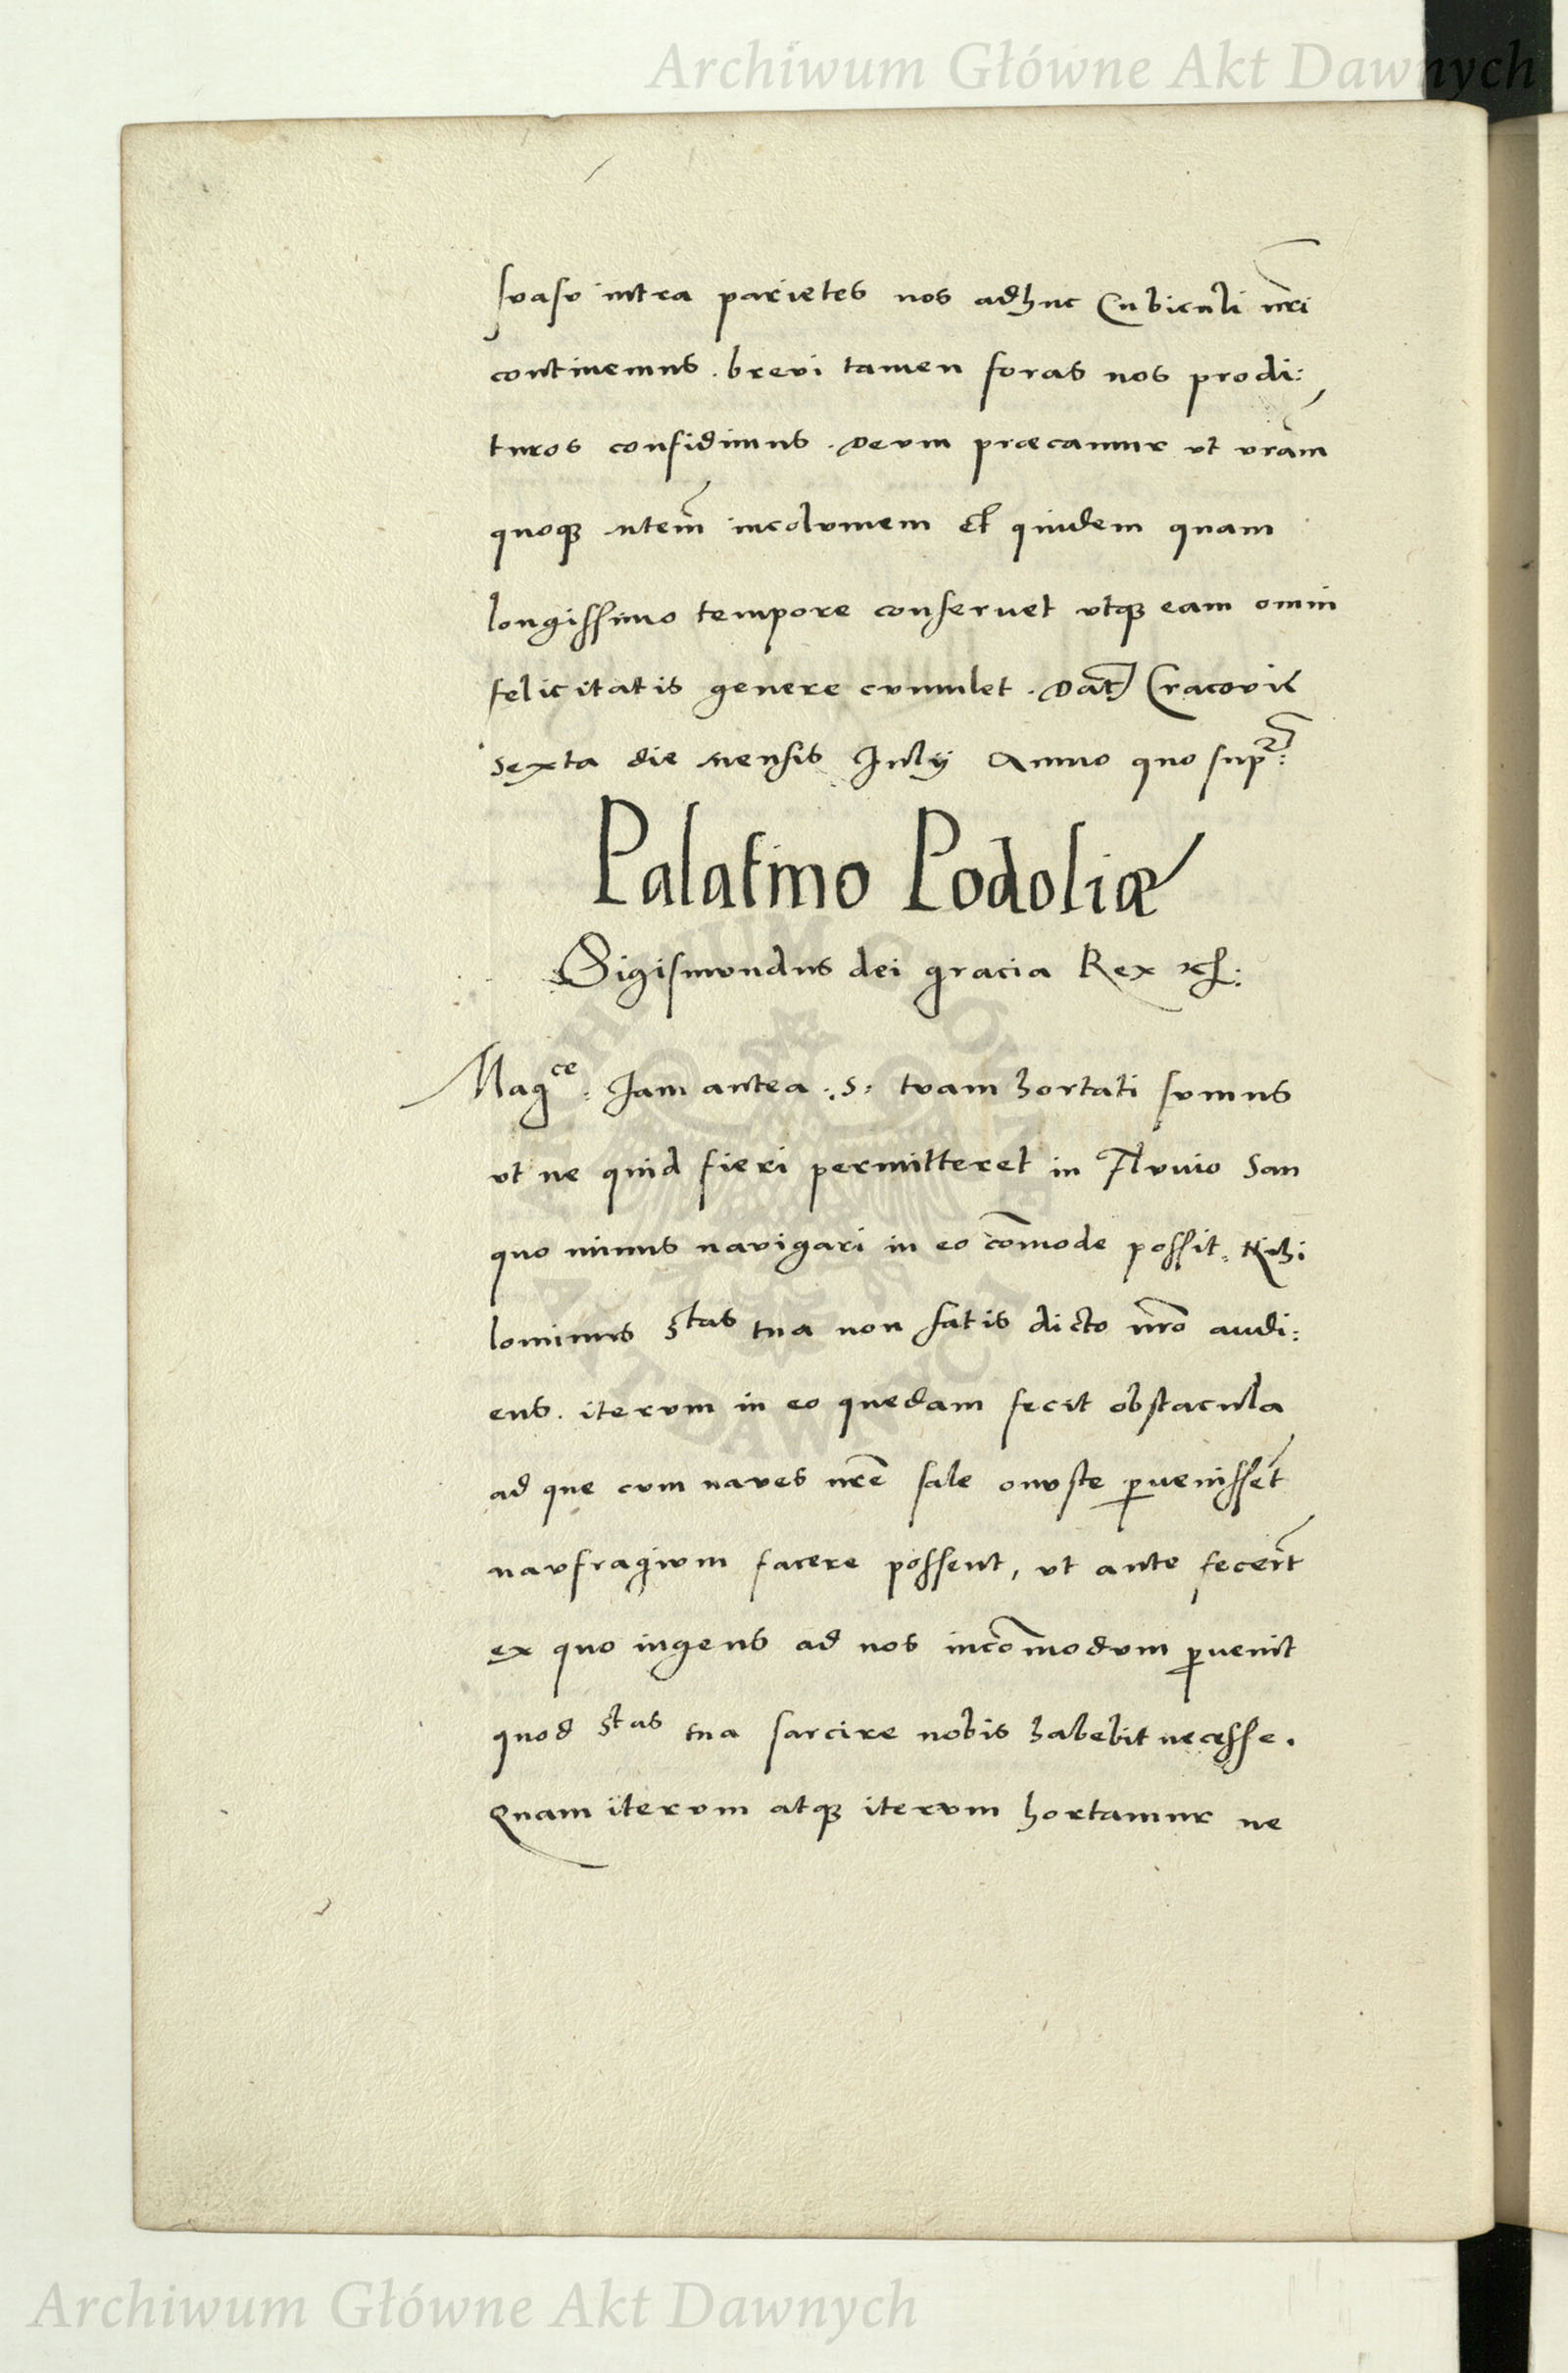 Archiwum Główne Akt Dawnych
svasv intra parietes nos adhuc Cubiculi nr̃i
continemus . brevi tamen foras nos prodi:
turos confidimus . Deum præcamur ut vrãm
quoqȝ mtem̃ incolumem et quidem quam
longissimo tempore conservet utqȝ eam omni
felicitatis genere cumulet . Dat̃ Cracovie
sexta die mensis July Anno quo supra:
Palatino Podoliæ
Sigismundus dei gracia Rex etc:
Magce : Jam antea .s: tuam hortati sumus
ut ne quid fieri permitteret in Fluvio San
quo minus navigari in eo cõmode possit. Nihi
lominus Stas tua non satis dicto nr̃o audi:
ens. iterum in eo quedam fecit obstacula
ad que cum naves nr̃e sale onuste ꝑvenissẽt
naufragium facere possent, ut ante fecerũt
ex quo ingens ad nos incõmodum ꝑvenit
quod Stas tua sarcire nobis habebit necesse.
Quam iterum atqȝ iterum hortamur ne
ARCHIWUM GŁÓWNE AKT DAWNYCH
Archiwum Główne Akt Dawnych